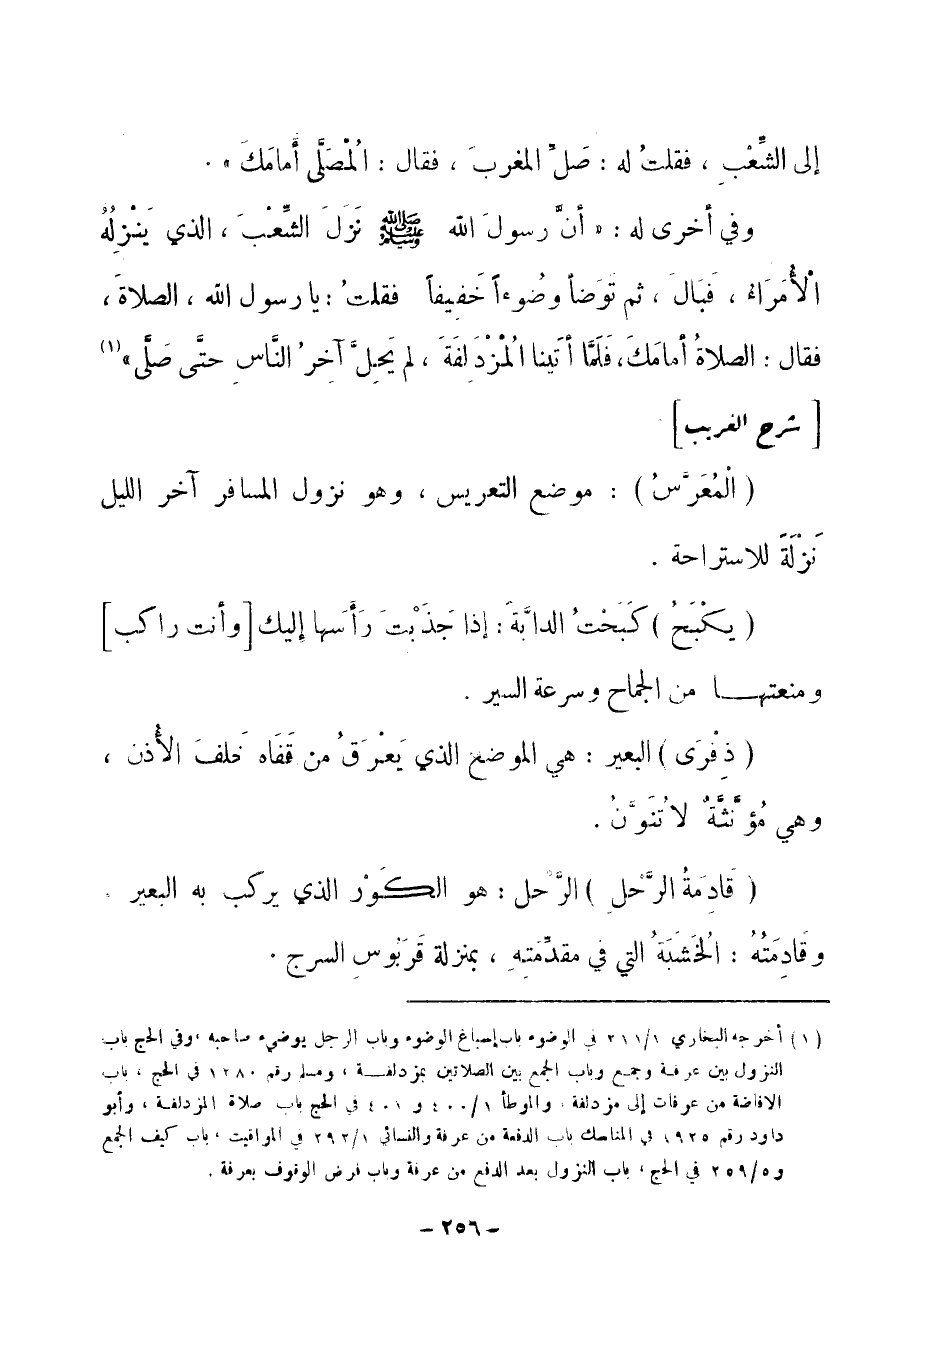 إلى الشِّعْبِ ، فقلتُ له : صَلِّ المغربَ ، فقال : الْمُصَلَّى أَمامَكَ » .
وفي أخرى له : « أَنَّ رسولَ الله ﷺ نَزَلَ الشِّعْبَ ، الذي يَنْزِلُهُ
الْأُمَرَاءُ ، فَبَالَ ، ثم تَوَضأَ وضُوءاً خَفِيفاً فقلتُ : يا رسول الله ، الصلاةَ ،
فقال : الصلاةُ أَمامَكَ، فَلَمَّا أَتَينا الْمُزْدَلِفَةَ ، لم يَحِلَّ آخِرُ النَّاسِ حتَّى صَلَّى »(١)
[ شرح الغريب ]
( الْمُعَرَّسُ ) : موضع التعريس ، وهو نزول المسافر آخر الليل
نَزْلَةً للاستراحة .
( يكْبَحُ ) كَبَحْتُ الدابَّةَ : إذا جَذَبْتَ رَأْسَها إليك [ وأنت راكب ]
ومنعتهـا من الجماح وسرعة السير .
( ذِفْرَى ) البعير : هي الموضع الذي يَعْرَقُ من قَفَاه خَلفَ الأُذن ،
وهي مُؤَنَّثَةٌ لا تُنَوَّنُ .
( قَادِمَةُ الرَّحْلِ ) الرَّحْل : هو الكَوْر الذي يركب به البعير .
وقَادِمَتُهُ : الخَشَبَةُ التي في مقدِّمَتِهِ ، بمنزلة قَرَبُوسِ السرج .
(١) أخرجه البخاري ٢١١/١ في الوضوء باب إسباغ الوضوء وباب الرجل يوضيء صاحبه ، وفي الحج باب
النزول بين عرفة وجمع وباب الجمع بين الصلاتين بمزدلفة ، ومسلم رقم ١٢٨٠ في الحج ، باب
الافاضة من عرفات إلى مزدلفة ، والموطأ ٤٠٠/١ و ٤٠١ في الحج باب صلاة المزدلفة ، وأبو
داود رقم ١٩٢٥ في المناسك باب الدفعة من عرفة والنسائي ٢٩٢/١ في المواقيت ، باب كيف الجمع
و ٢٥٩/٥ في الحج ، باب النزول بعد الدفع من عرفة وباب فرض الوقوف بعرفة .
- ٢٥٦ -